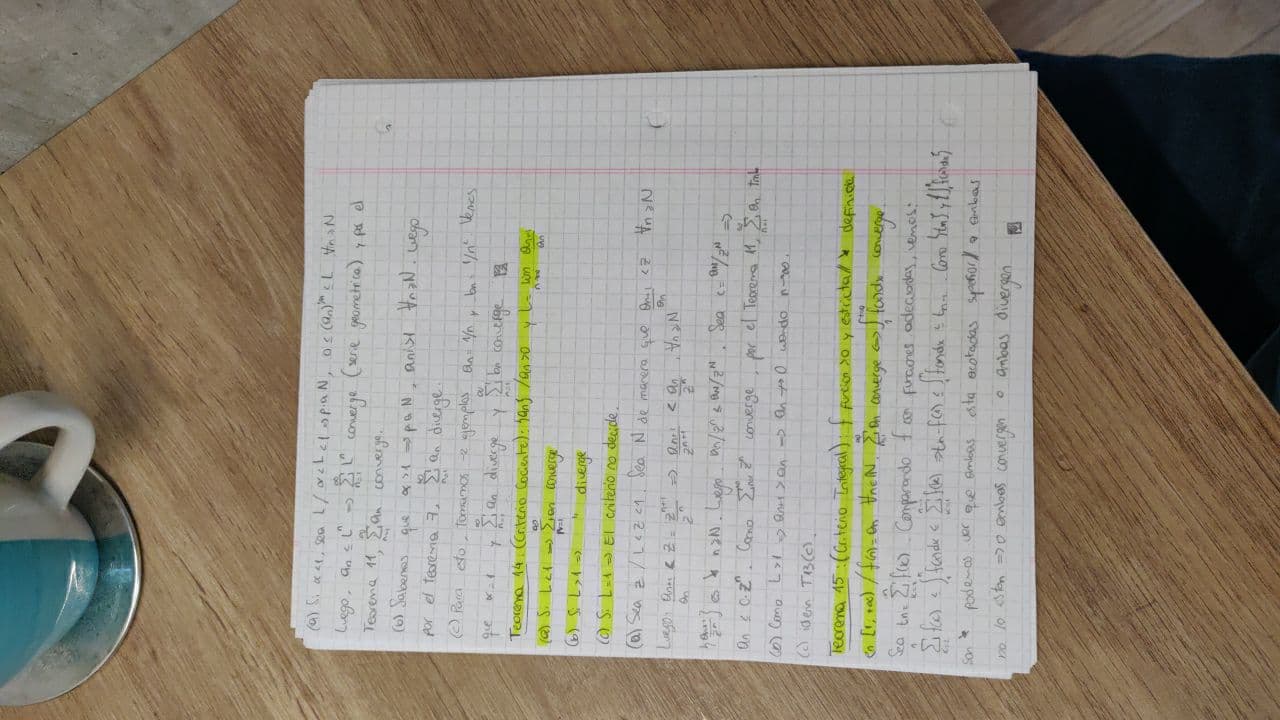 (a) Si α<1, sea L / α<L<1 ⇒ p.a N, 0 ≤ (an)^1/n < L ∀n≥N
Luego, an ≤ L^n ⇒ ∑_{n=1}^∞ L^n converge (serie geometrica) y por el
Teorema 11, ∑_{n=1}^∞ an converge.
(b) Sabemos que α>1 ⇒ p.a N, an>1 ∀n≥N. Luego
por el teorema 7, ∑_{n=1}^∞ an diverge.
(c) Para esto, tomamos 2 ejemplos an = 1/n y bn = 1/n². Vemos
que α=1 y ∑_{n=1}^∞ an diverge y ∑_{n=1}^∞ bn converge
Teorema 14: (Criterio Cociente): {an} / an>0 y L = lim_{n→∞} an+1/an
(a) Si L<1 ⇒ ∑_{n=1}^∞ an converge
(b) Si L>1 ⇒ " diverge
(c) Si L=1 ⇒ El criterio no decide.
(a) Sea z / L<z<1. Sea N de manera que an+1/an < z ∀n≥N
Luego: an+1/an < z = z^{n+1}/z^n ⇒ an+1/z^{n+1} < an/z^n, ∀n≥N
{an+1/z^n} es ↘ n≥N. Luego an/z^n ≤ aN/z^N. Sea c = aN/z^N ⇒
an ≤ c·z^n. Como ∑ z^n converge, por el Teorema 11, ∑_{n=1}^∞ an tmb
(b) Como L>1 ⇒ an+1 > an ⇒ an ↛ 0 cuando n→∞.
(c) idem T13(c).
Teorema 15: (Criterio Integral): f funcion >0 y estricta// ↘ definida
en [1, +∞) / f(n)=an ∀n∈N. ∑_{n=1}^∞ an converge ⇔ ∫_1^{+∞} f(x)dx converge.
Sea tn = ∑_{k=1}^n f(k). Comparando f con funciones adecuadas, vemos:
∑_{k=2}^n f(k) < ∫_1^n f(x)dx < ∑_{k=1}^{n-1} f(k) ⇒ tn - f(1) ≤ ∫_1^n f(x)dx ≤ tn-1. Como {tn} y {∫_1^n f(x)dx}
son podemos ver que ambas esta acotadas superior// o ambas
no lo estan ⇒ o ambas convergen o ambas divergen